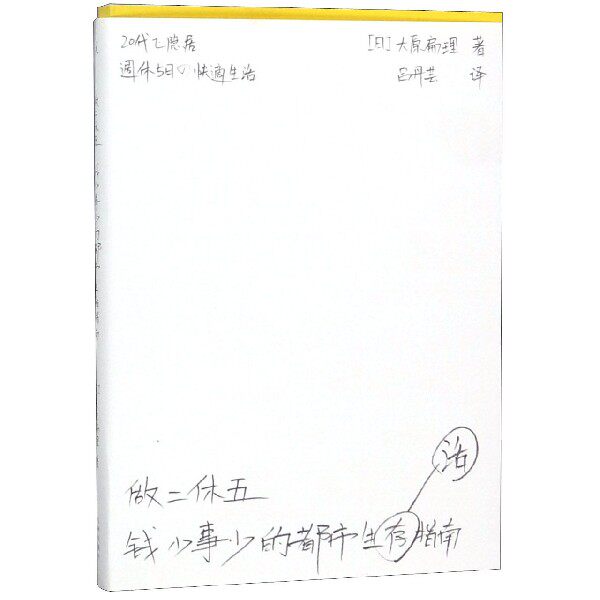 20代で隠居 [日]大原扁理 著
週休5日の快適生活 吕丹芸 译
活
做二休五
钱少事少的都市生存指南